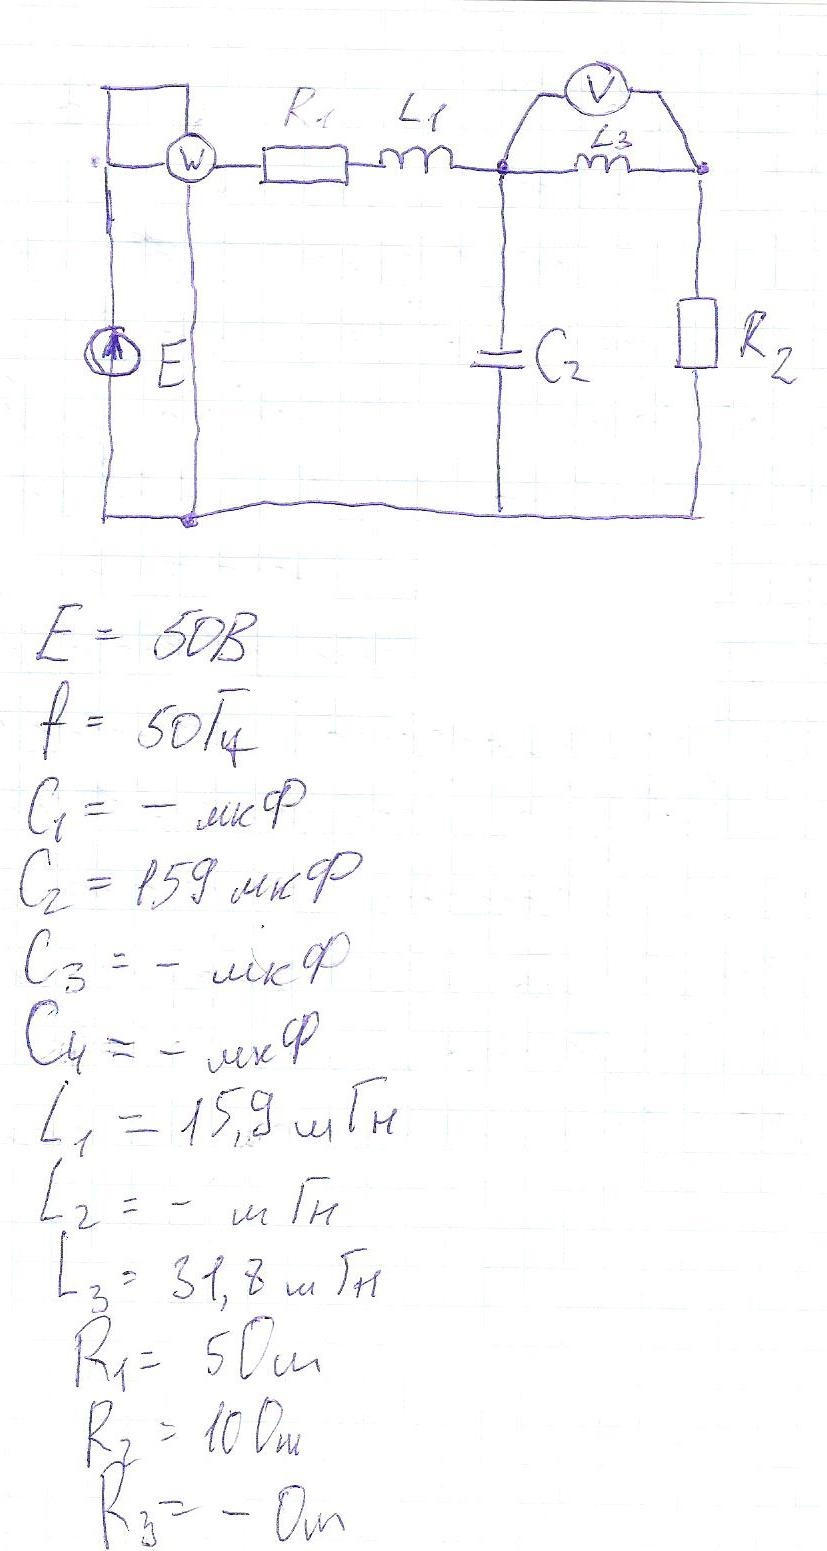 V
R1 L1 L3
W
E C2 R2
E = 50В
f = 50Гц
C1 = - мкФ
C2 = 159 мкФ
C3 = - мкФ
C4 = - мкФ
L1 = 15,9 мГн
L2 = - мГн
L3 = 31,8 мГн
R1 = 5 Ом
R2 = 10 Ом
R3 = - Ом